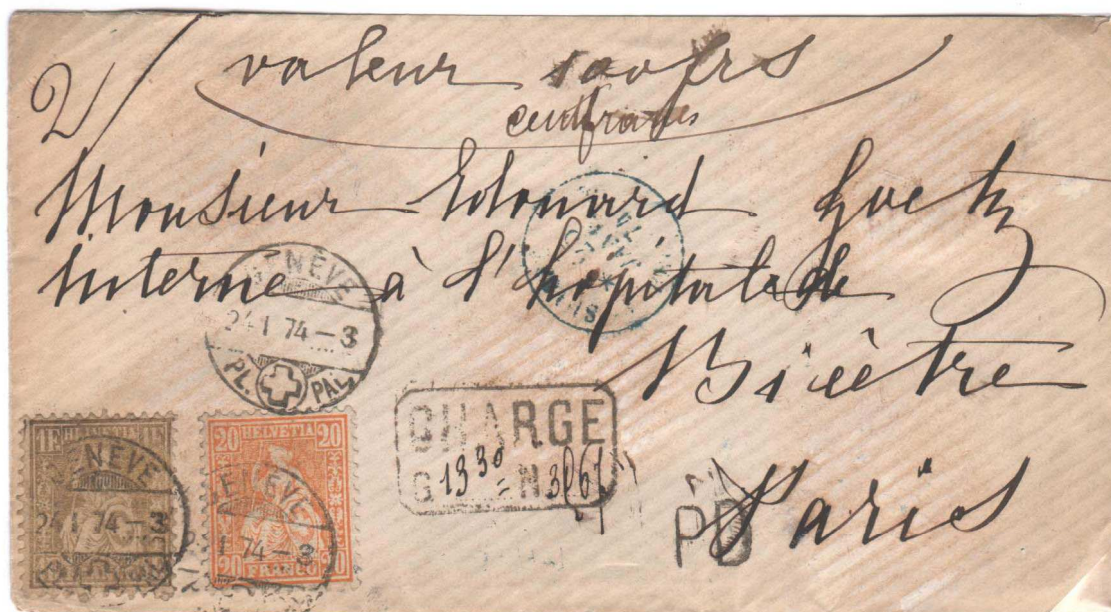 valeur 100 frs
cent francs
Monsieur Edouard Goetz
interne à l'hôpital de
Bicêtre
Paris
GENÈVE
24 I 74 – 3
PL. PAL.
CHARGÉ
G 13 30 N 3
PD
1F HELVETIA 1F
GENÈVE
24 I 74 – 3
20 HELVETIA 20
GENÈVE
I 74 – 3
20 FRANCO 20